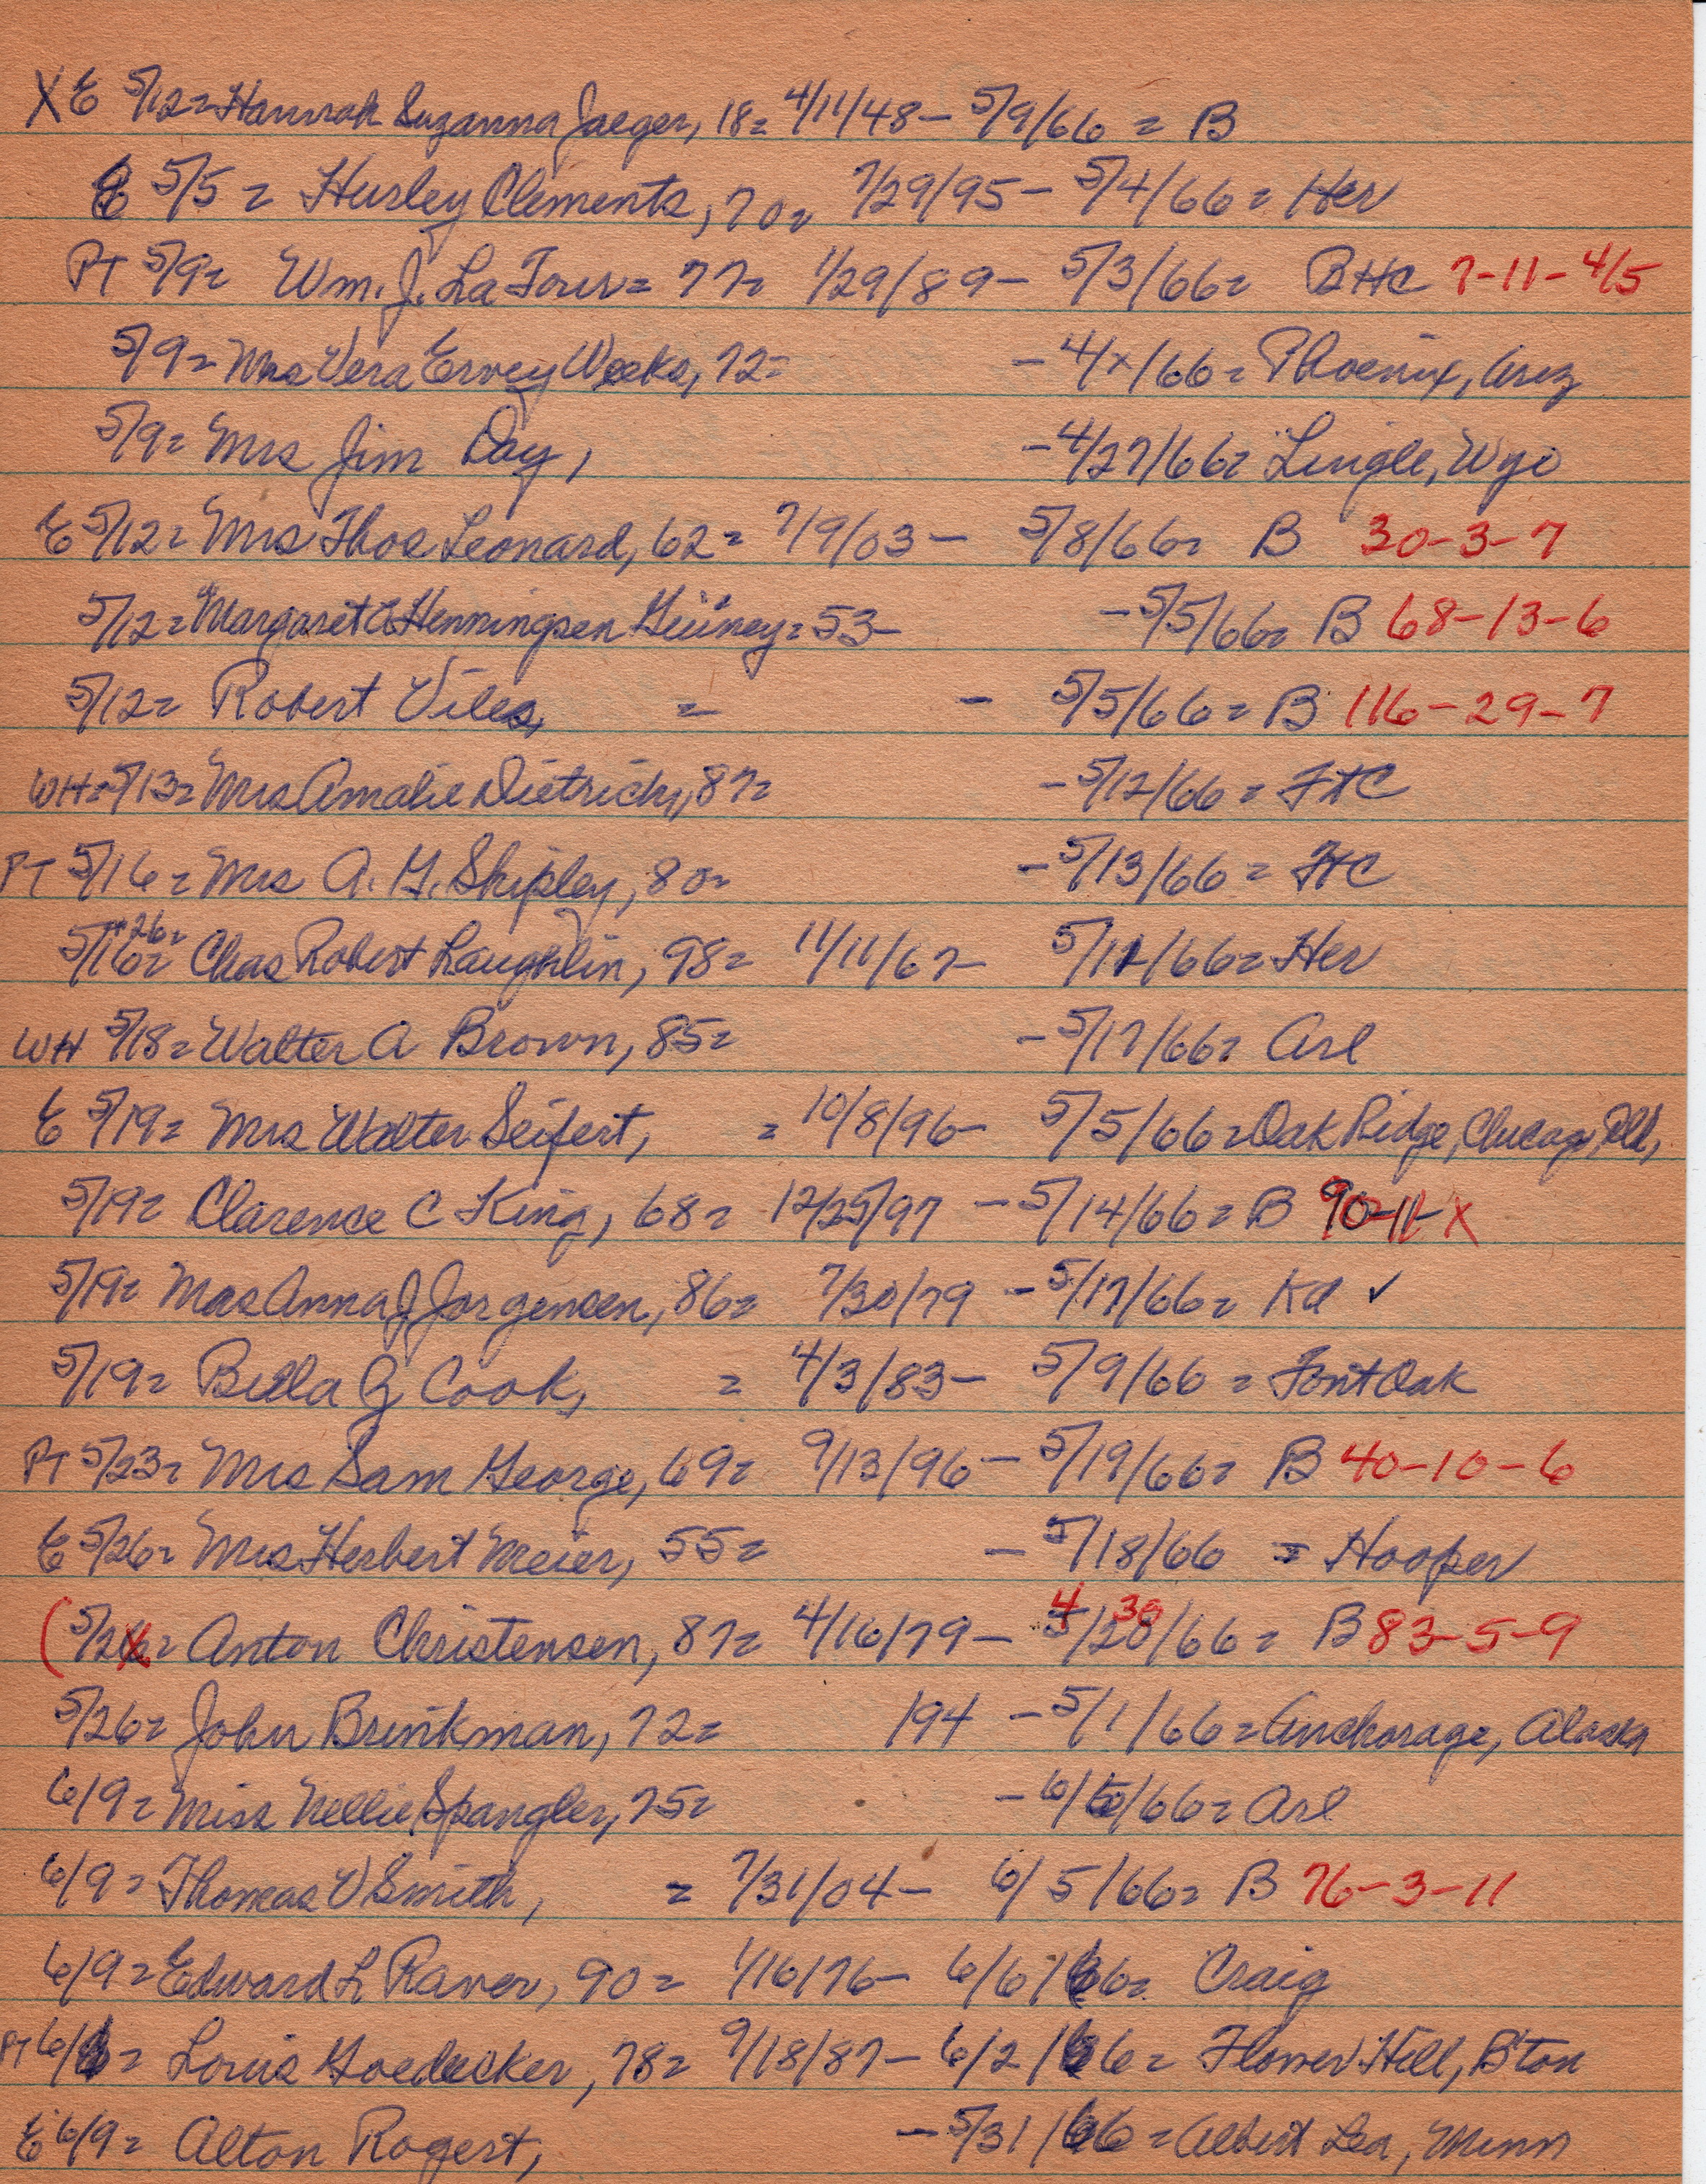 X E 5/12= Hannah Suzanna Jaeger, 18= 4/11/48- 5/9/66 = B
E 5/5= Hurley Clements, 70= 7/29/95- 5/4/66= Her
PT 5/9= Wm. J. La Tour= 77= 1/29/89- 5/3/66= BHC 7-11-4/5
5/9= Mrs Vera Ervey Weeks, 72= -4/x/66= Phoenix, Ariz
5/9= Mrs Jim Day, -4/27/66= Lingle, Wyo
E 5/12= Mrs Thos Leonard, 62= 7/9/03- 5/8/66= B 30-3-7
5/12= Margaret Henningsen 53- -5/5/66= B 68-13-6
5/12= Robert Viles, = - 5/5/66= B 116-29-7
WH= 5/13= Mrs Amalie Dietrich, 87= -5/12/66=
PT 5/16= Mrs A. G. Shipley, 80= -5/13/66= FtC
5/16= 26= Chas Robert Laughlin, 98= 11/11/67- 5/11/66= Her
WH 5/18= Walter A Brown, 85= -5/17/66= Arl
E 5/19= Mrs Walter Seifert, = 10/8/96- 5/5/66= Oak Ridge, Chicago, Ill,
5/19= Clarence C King, 68= 12/25/97 -5/14/66= B 90-11-X
5/19= Mrs Anna J Jorgensen, 86= 7/30/79 -5/17/66= Ka ✓
5/19= Bella G Cook, = 4/3/83- 5/9/66= Font Oak
PT 5/23= Mrs Sam George, 69= 9/13/96- 5/19/66= B 40-10-6
E 5/26= Mrs Herbert Meier, 55= - 5/18/66 = Hooper
(5/26= Anton Christensen, 87= 4/16/79- 4 30 5/20/66= B 83-5-9
5/26= John Brinkman, 72= 194 -5/1/66= Anchorage, Alaska
6/9= Miss Nellie Spangler, 75= -6/5/66= Arl
6/9= Thomas V Smith, = 7/31/04- 6/5/66= B 76-3-11
6/9= Edward L Raver, 90= 1/16/76- 6/6/66= Craig
PT 6/6= Louis Goedecker, 78= 9/18/87- 6/2/66= Flower Hill, B'ton
E 6/9= Alton Rogert, -5/31/66= Albert Lea, Minn